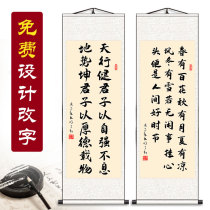 免费设计改字
天行健君子以自强不息
地势坤君子以厚德载物
春有百花秋有月夏有凉
风冬有雪若无闲事挂心
头便是人间好时节